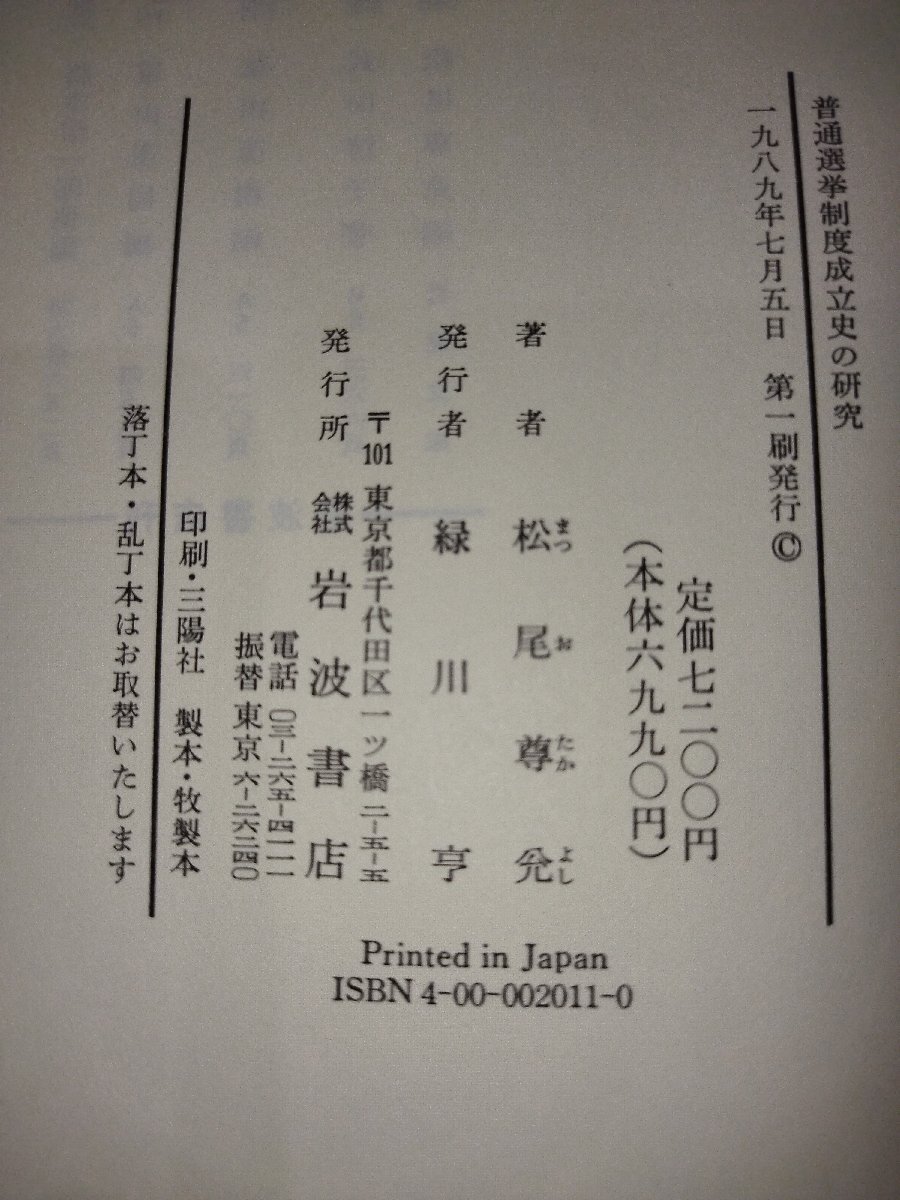 普通選挙制度成立史の研究
一九八九年七月五日 第一刷発行©
定価七二〇〇円
(本体六九九〇円)
著者 松尾尊兊
まつ お たか よし
発行者 緑川亨
〒101 東京都千代田区一ツ橋二-五-五
発行所 株式会社 岩波書店
電話 〇三-二六五-四一一一
振替 東京 六-二六二四〇
印刷・三陽社 製本・牧製本
落丁本・乱丁本はお取替いたします
Printed in Japan
ISBN 4-00-002011-0